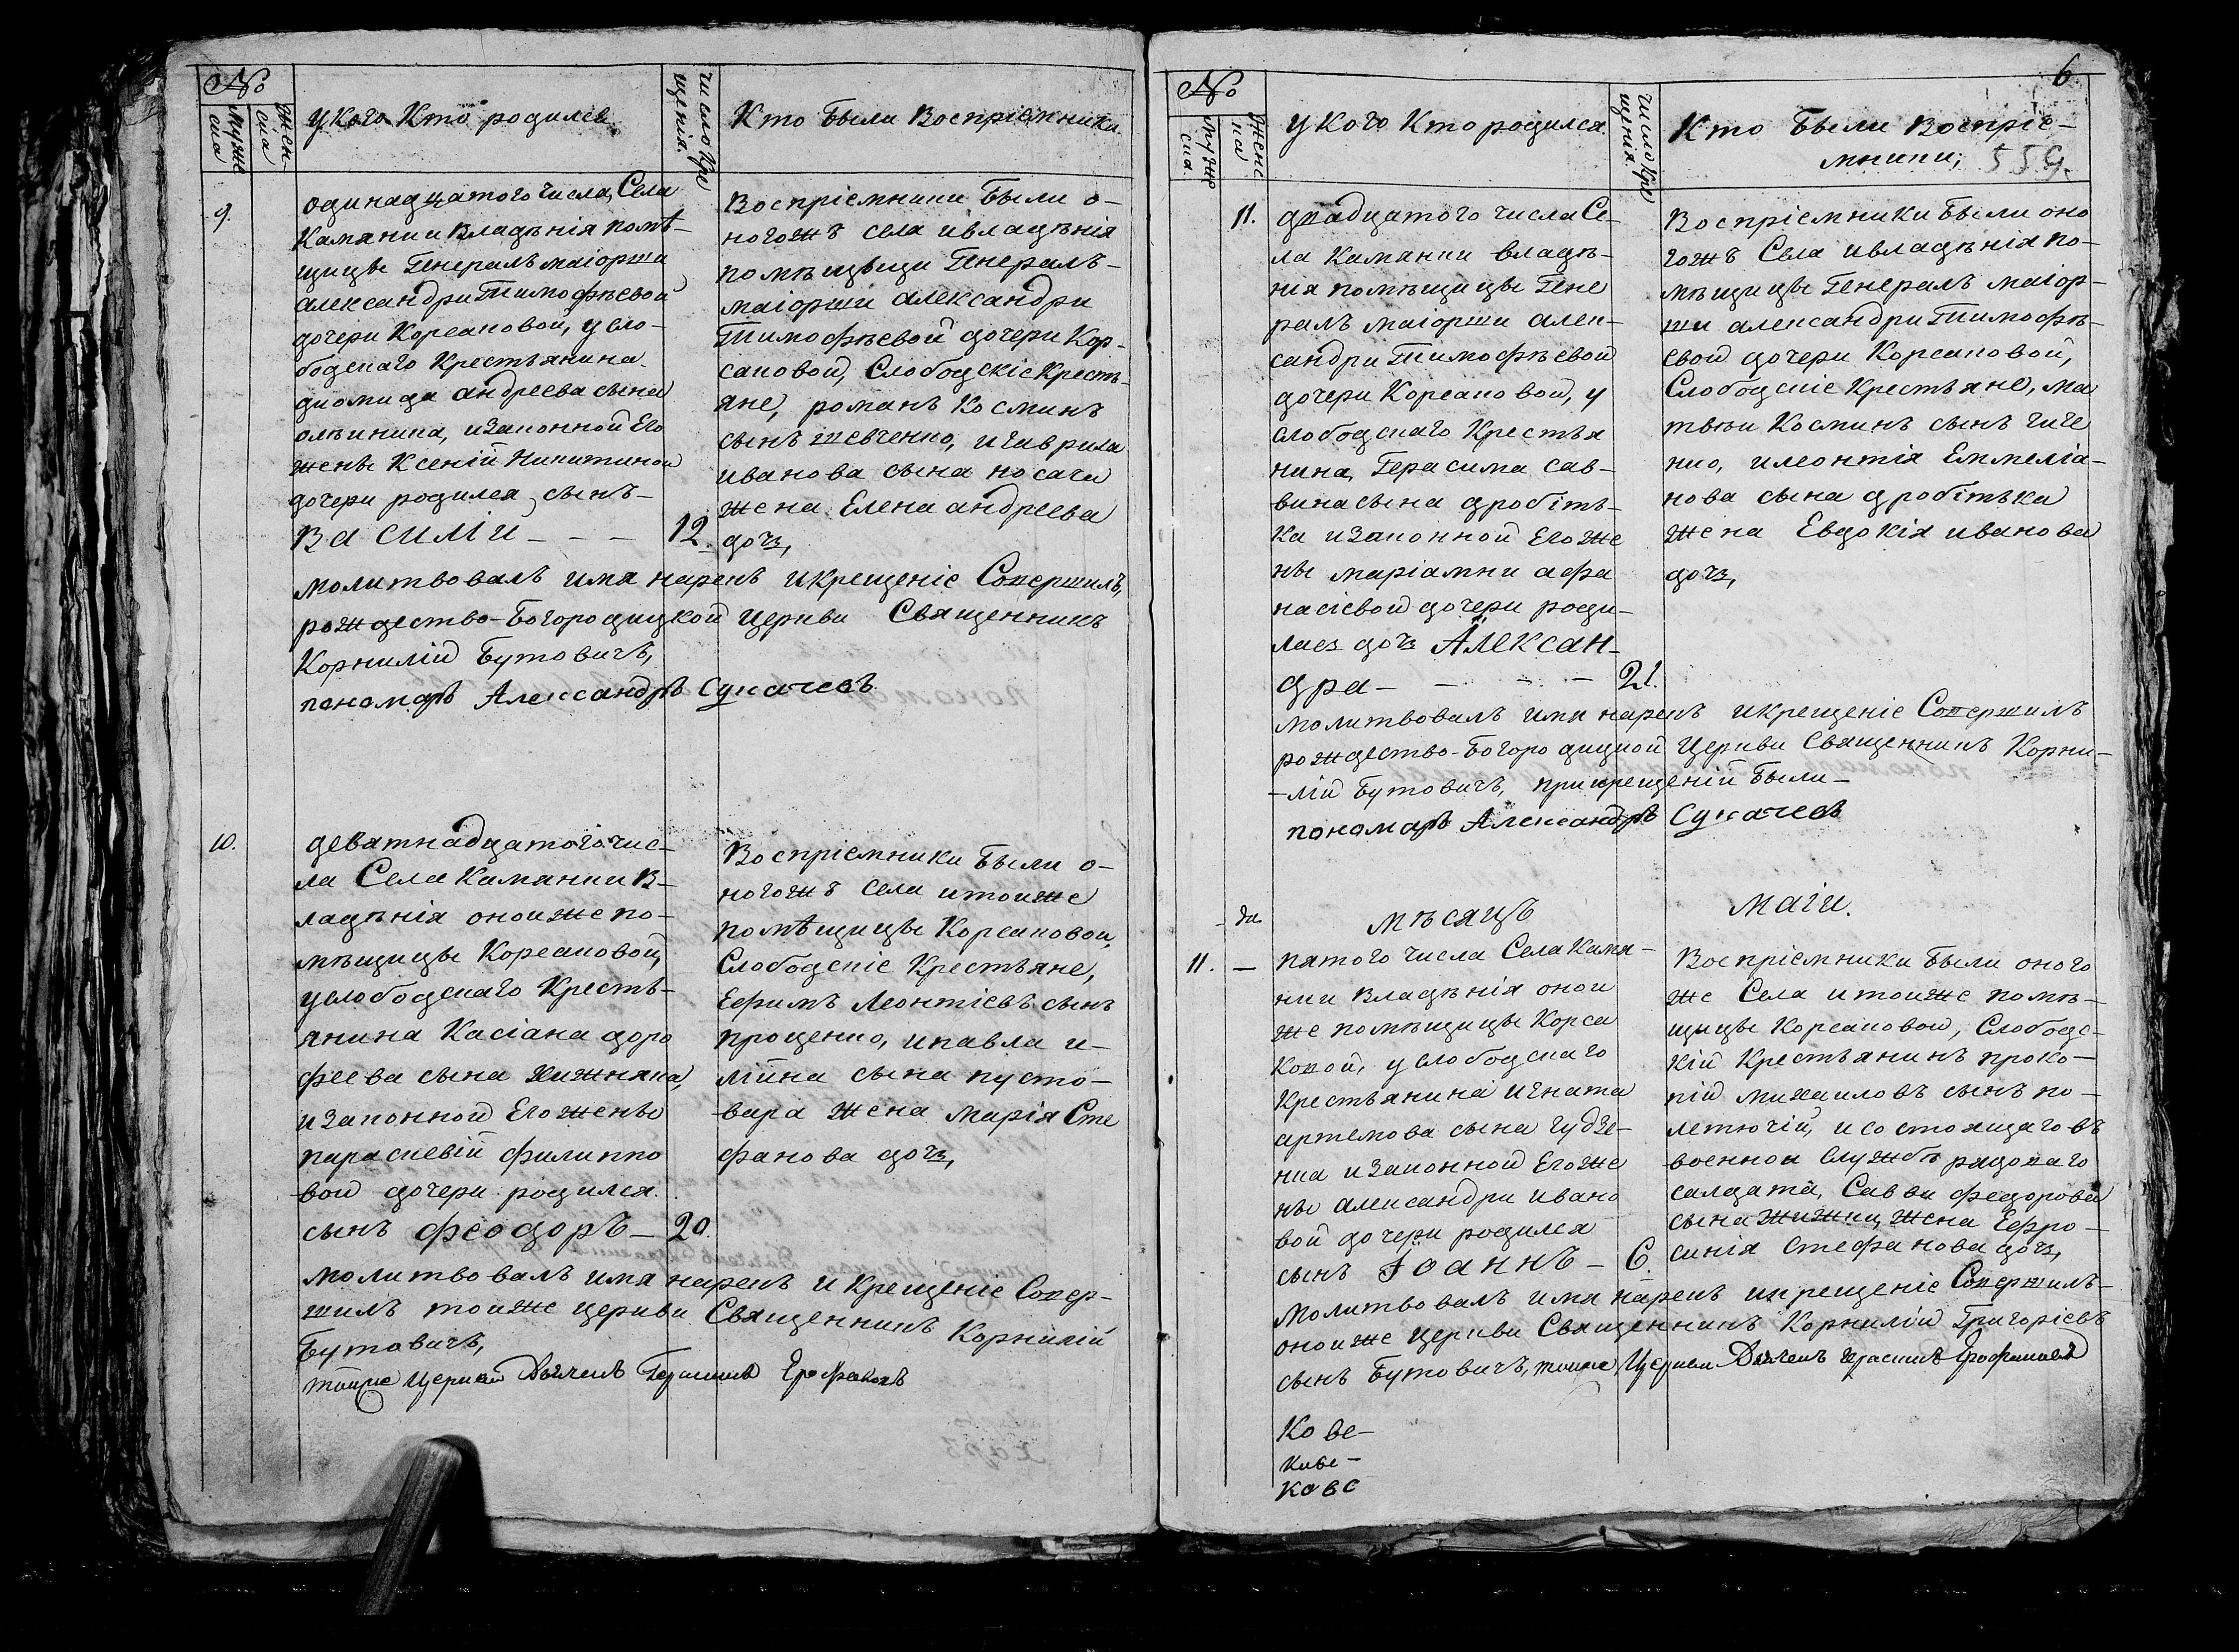 №
Муже
ска
Жен-
ска
У Кого Кто родился
число кре
щенія.
Кто Были Восприемники
9.
одинадцатого числа, Села
Камянки Владѣнія помѣ-
щицы Генералъ маіорши
александри Тимофѣевой
дочери Корсаковой, у сло-
бодскаго Крестьянина
диомида андреева сына
олѣиника, изаконной Его
жены Ксеніи Никитиной
дочери родился сынъ-
Василій - - - 12.
Восприемники Были о-
ногожъ села ивладѣнія
помѣщицы Генералъ-
маіорши александри
Тимофѣевой дочери Кор-
саковой, Слободскіе Кресть-
яне, романъ Косминъ
сынъ шевченко, игаврила
иванова сына носача
жена Елена андреева
дочь,
молитвовалъ имя нарекъ икрещеніе Совершилъ,
рождество-Богородицкой церкви Священникъ
Корнилій Бутовичъ,
пономарь Александръ Сукачевъ
10.
деватнадцатого чис-
ла Села Камянки В-
ладѣнія оноиже по-
мѣщицы Корсаковой,
услободскаго Кресть-
янина Касіана доро
феева сына хижняка,
изаконной Его жены
параскевіи филиппо
вой дочери родился
сынъ Феодоръ - 20.
Восприемники Были о-
ногожъ села итоиже
помѣщицы Корсаковой,
Слободскіе Крестьяне,
Ефимъ Леонтіевъ сынъ
проценко, ипавла и-
лііна сына пусто-
вара жена марія Сте
фанова дочь,
молитвовалъ имя нарекъ и Крещеніе Совер-
шилъ тоиже церкви Священникъ Корнилій
Бутовичъ,
тоиже Церкви Дьячекъ Герасимъ Ерофѣевъ
6.
559.
№
Муже
ска.
Женс
ка
У Кого Кто родился.
число кре
щенія.
Кто Были Восприе-
мники,
11.
двадцатого числа Се-
ла Камянки владѣ-
нія помѣщицы Гене
ралъ маіорши алек-
сандри Тимофѣевой
дочери Корсаковой, у
слободскаго Крестья
нина, Герасима Сав-
вина сына дробітъ-
ка изаконной Его же
ны маріамни афа
насіевой дочери роди-
лась дочь Алексан-
дра - - - - 21.
Восприемники Были оно
гожъ Села ивладѣнія по-
мѣщицы Генералъ маіор-
ши александри Тимофѣ-
евой дочери Корсаковой,
Слободскіе Крестьяне, ма
твѣи Косминъ сынъ чиче
нко, илеонтія Еммеліа-
нова сына дробітька
жена Евдокія иванова
дочь,
молитвовалъ имя нарекъ икрещеніе Совершилъ
рождество-Богородицкой Церкви Священникъ Корни-
-лій Бутовичъ, прикрещеніи Были-
пономарь Александръ Сукачевъ
мѣсяцъ
маіи.
11. -
пятого числа Села Камя-
нки Владѣнія онои
же помѣщицы Корса
ковой, услободскаго
Крестьянина игната
артемова сына гудзе-
нка изаконной Его же
ны александри ивано
вой дочери родился
сынъ Іоаннъ - 6.
Восприемники Были оного
же Села итоиже помѣ-
щицы Корсаковой, Слободс-
кій Крестьянинъ проко-
пій михаиловъ сынъ по-
летючій, исостоящаго въ
военной Службѣ рядоваго
салдата, Саввы федорова
сына жижки, жена Ефро-
синія Стефанова дочь,
Молитвовалъ имя нарекъ икрещеніе Совершилъ-
оноиже церкви Священникъ Корнилій Григоріевъ
сынъ Бутовичъ, тоиже Церкви Дьячекъ Герасимъ Ерофѣевъ
Кове-
Кове-
Кове